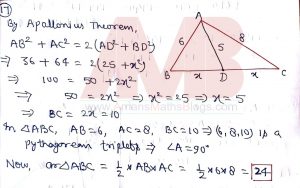 17
By Apallonius Theorem,
AB² + AC² = 2(AD² + BD²)
⇒ 36 + 64 = 2(25 + x²)
⇒ 100 = 50 + 2x²
⇒ 50 = 2x² ⇒ x² = 25 ⇒ x = 5
⇒ BC = 2x = 10
In △ABC, AB = 6, AC = 8, BC = 10 ⇒ (6, 8, 10) is a
pythagorean triplets ⇒ ∠A = 90°
Now, ar△ABC = 1/2 × AB × AC = 1/2 × 6 × 8 = 24
A
6
5
8
B
x
D
x
C